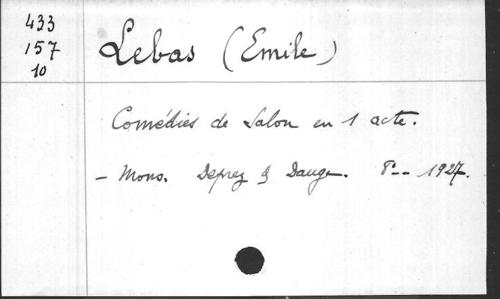 433
157
10
Lebas (Emile)
Comédies de Salon en 1 acte.
- Mons. Deprez & Dauge. 1927.